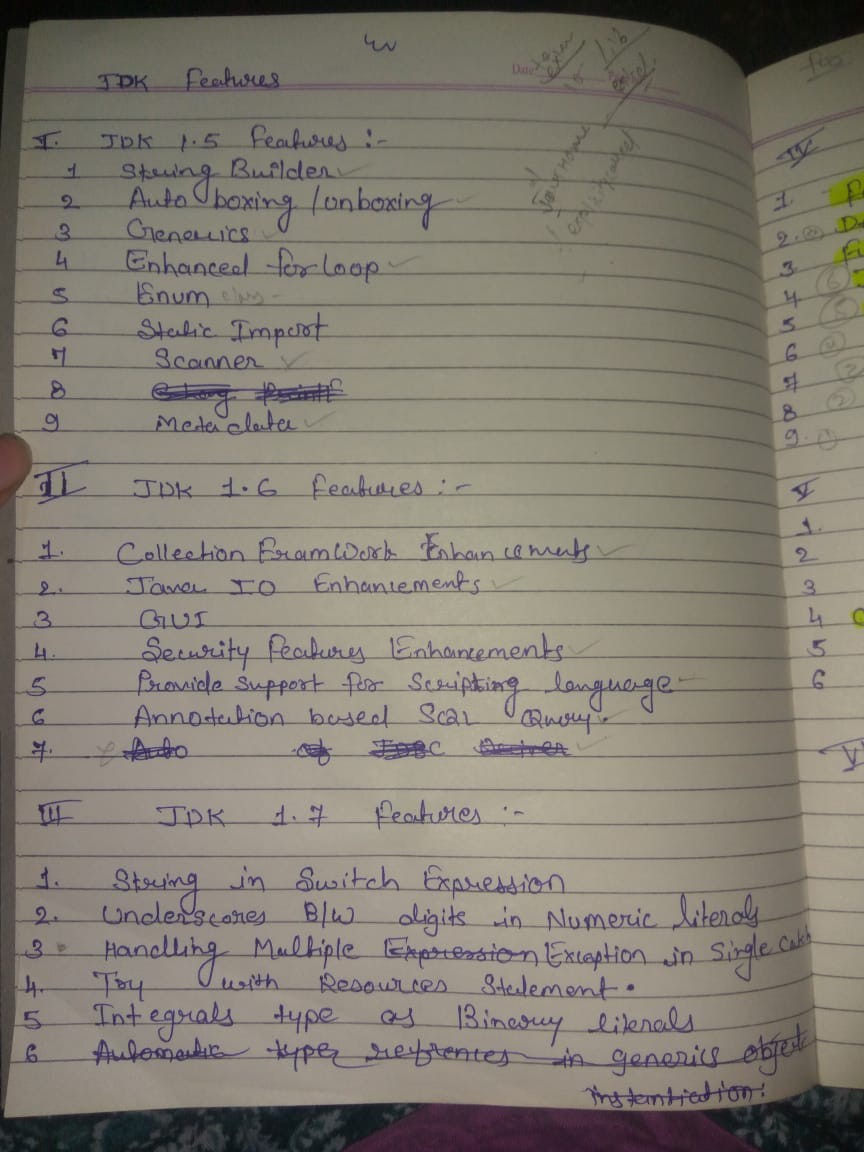 JDK Features
Date
I. JDK 1.5 Features :-
1 String Builder
2 Auto boxing / unboxing
3 Generics
4 Enhanced for loop
5 Enum class
6 Static Import
7 Scanner
8
9 Meta data
II JDK 1.6 Features :-
1. Collection FramWork Enhancements
2. Java IO Enhancements
3 GUI
4. Security Features Enhancements
5 Provide support for Scripting language
6 Annotation based SQL Query.
7. Auto of JDBC Driver
III JDK 1.7 Features :-
1. String in Switch Expression
2. Underscores B/W digits in Numeric literals
3 Handling Multiple Expression Exception in Single Catch
4. Try with Resources Statement.
5 Integrals type as Binary literals
6 Automatic type refrences in generics object
instantiation.
IV
1.
2.
3
4
5
6
7
8
9.
V
1.
2
3
4
5
6
V